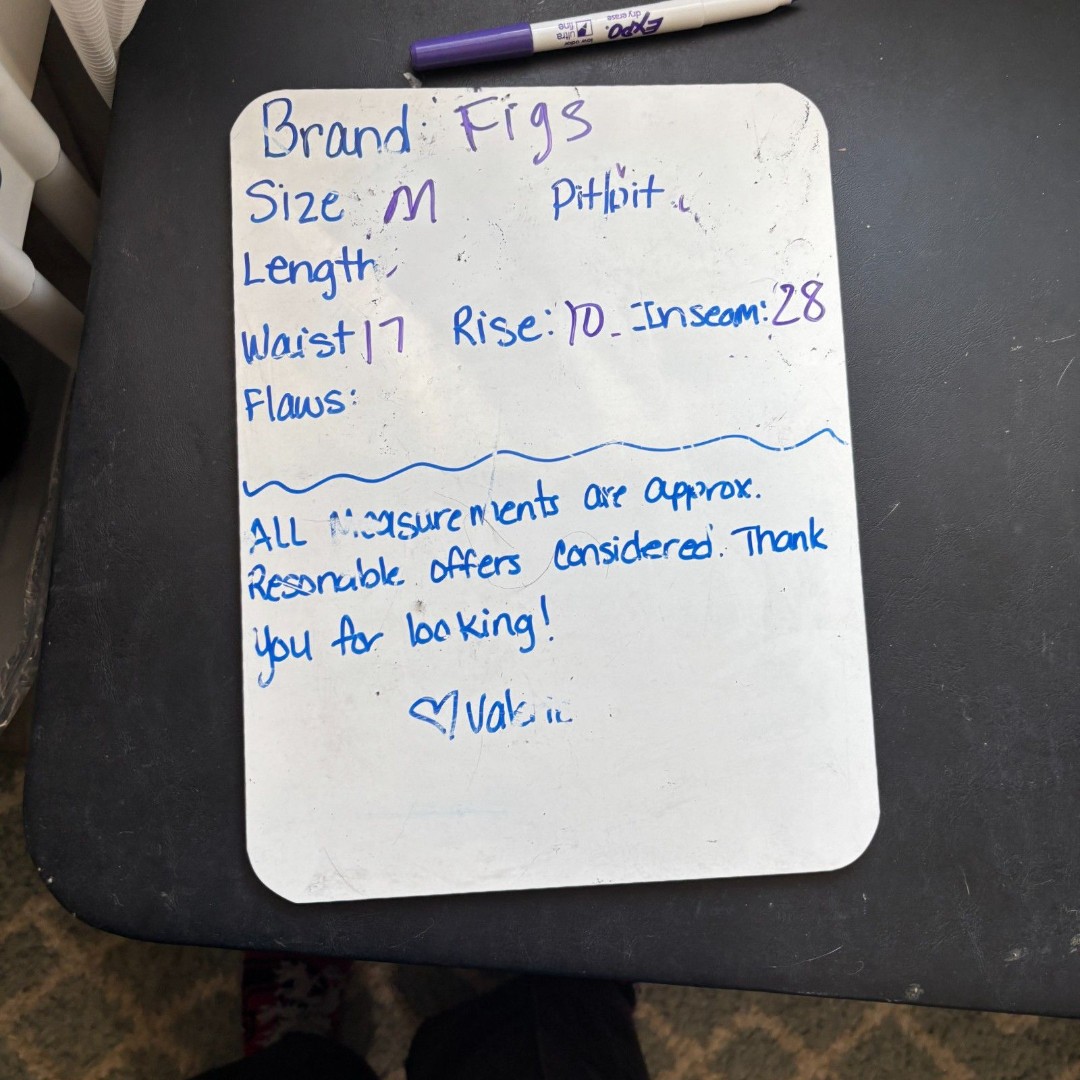 EXPO. dry erase
low odor ultra fine
Brand: Figs
Size M Pit/pit
Length
Waist 17 Rise: 10 Inseam: 28
Flaws:
ALL Measurements are approx.
Resonable offers considered. Thank
you for looking!
♡